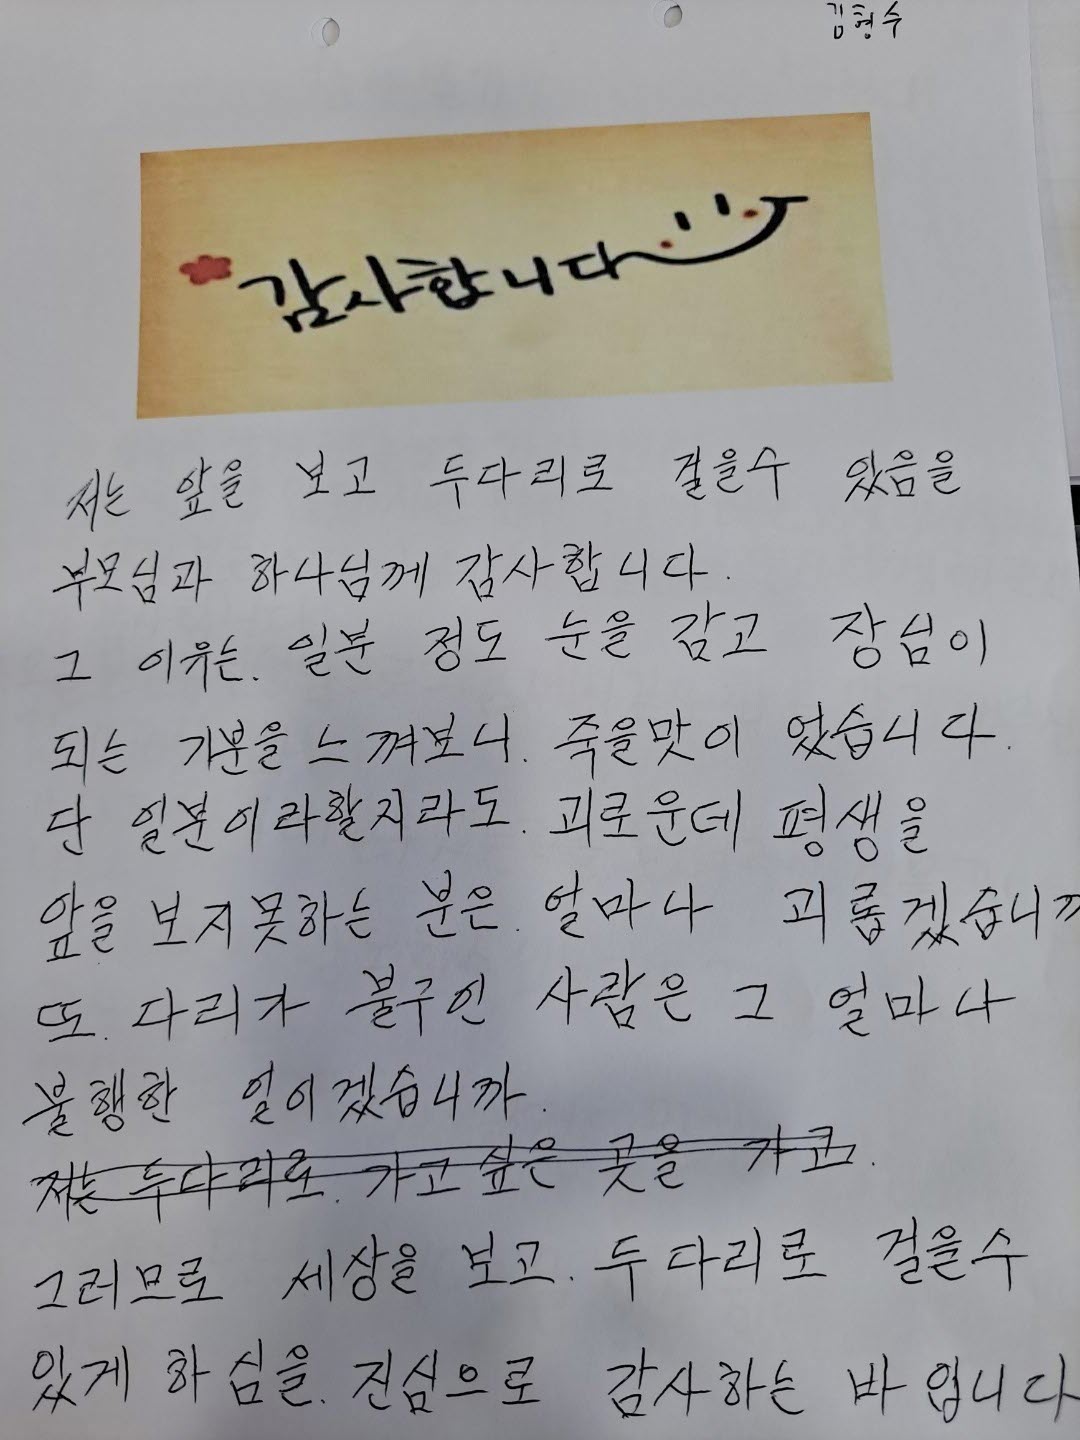 김형수
감사합니다
저는 앞을 보고 두다리로 걸을수 있음을
부모님과 하나님께 감사합니다.
그 이유는. 일분 정도 눈을 감고 장님이
되는 기분을 느껴보니. 죽을맛이 었습니다.
단 일분이라할지라도. 괴로운데 평생을
앞을 보지못하는 분은. 얼마나 괴롭겠습니까
또. 다리가 불구인 사람은 그 얼마나
불행한 일이겠습니까.
저는 두다리로. 가고싶은 곳을 가고.
그러므로 세상을 보고. 두다리로 걸을수
있게 하심을. 진심으로 감사하는 바 입니다